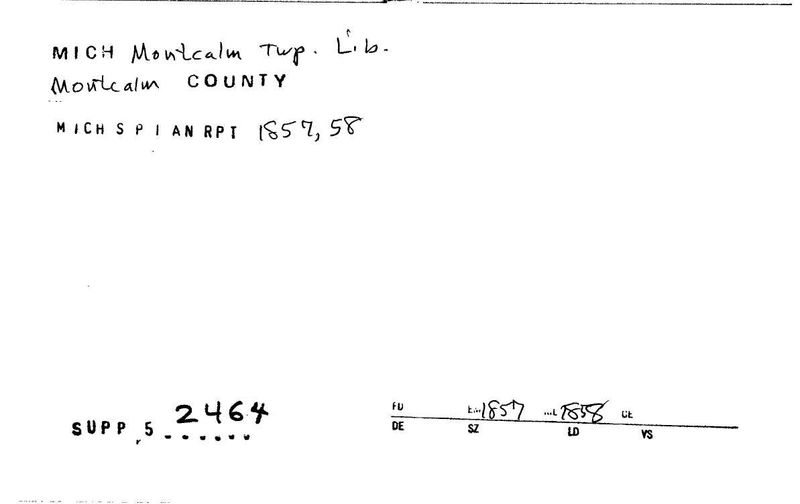 MICH Montcalm Twp. Lib.
Montcalm COUNTY
MICH S P I AN RPT 1857, 58
SUPP 5 2464
FD 1857 1858
DE SZ LD VS